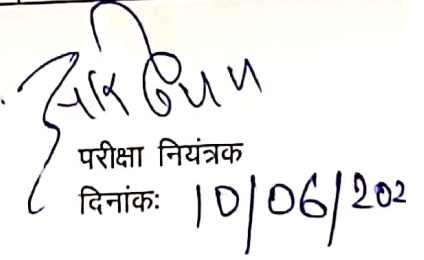 परीक्षा नियंत्रक
दिनांकः 10/06/202